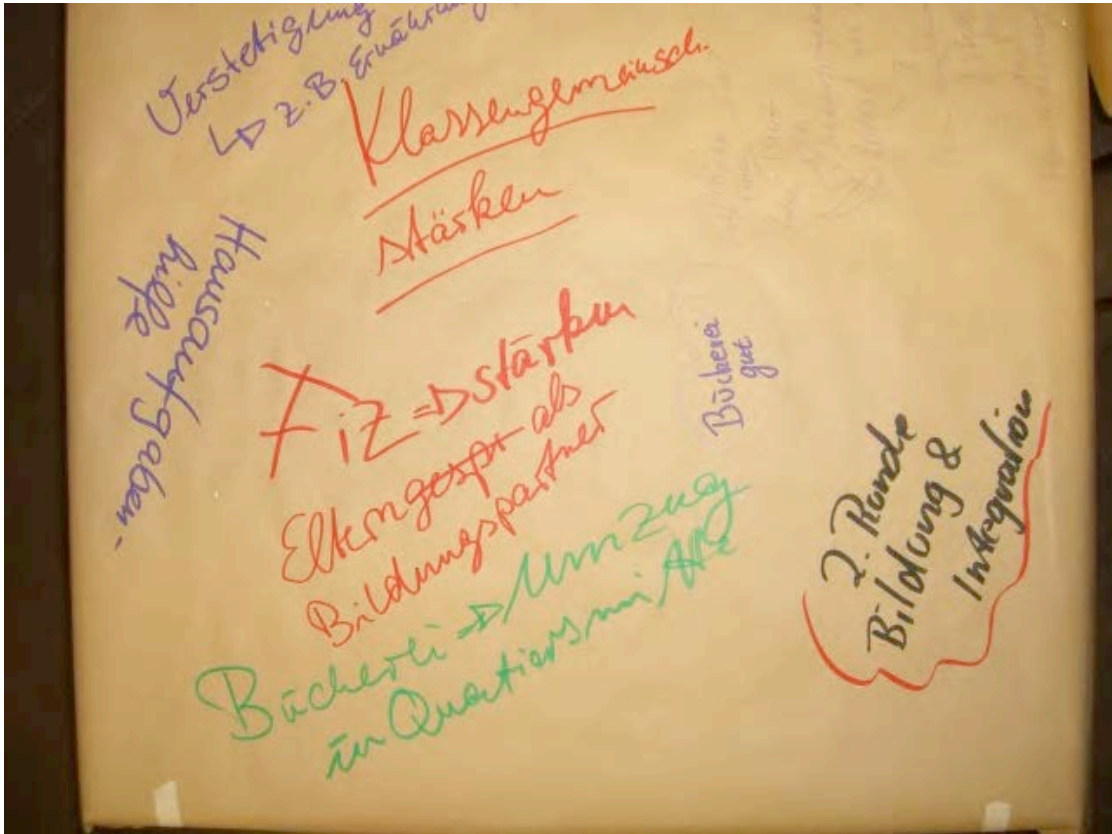 Verstetigung
↳ z.B. Ernährung
Klassengemeinsch.
stärken
Hausaufgaben-
hilfe
FiZ ⇒ stärken
Eltern als
Bildungspartner
Bücherei
gut
Bücherei ⇒ Umzug
in Quartiersmitte
2. Runde
Bildung &
Integration